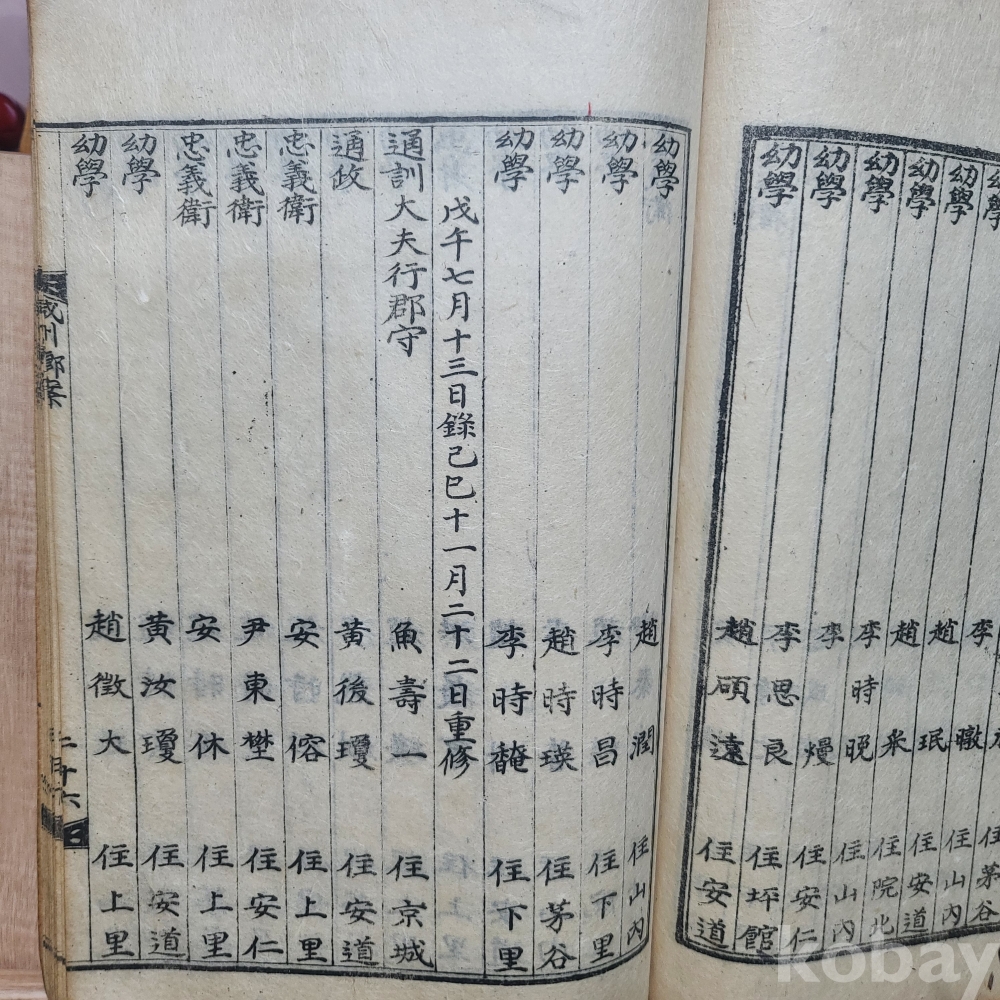 幼學 李
幼學 趙 珉 住山內
幼學 趙 釆 住安道
幼學 李時晚 住院北
幼學 李 熳 住山內
幼學 李思良 住安仁
幼學 趙碩遠 住坪館
住安道
幼學 趙 潤 住山內
幼學 李時昌 住下里
幼學 趙時瑛 住茅谷
幼學 李時馣 住下里
戊午七月十三日錄己巳十一月二十二日重修
通訓大夫行郡守 魚壽一 住京城
通政 黃後瓊 住安道
忠義衛 安 傛 住上里
忠義衛 尹東埜 住安仁
忠義衛 安 休 住上里
幼學 黃汝瓊 住安道
幼學 趙徵大 住上里
咸州鄉案
二十六
kobay